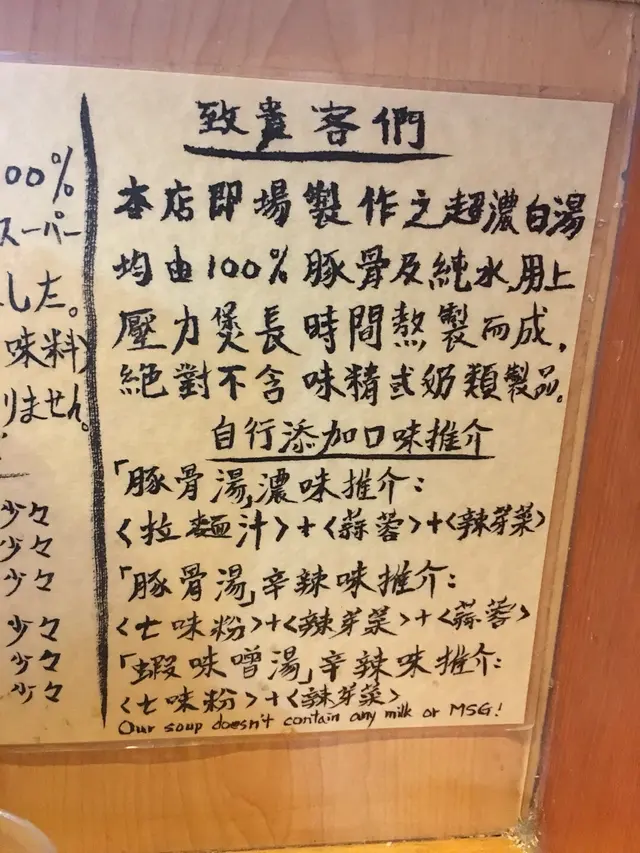 00%
スーパー
した。
味料)
りません。
少々
少々
少々
少々
少々
少々
致貴客們
本店即場製作之超濃白湯
均由100%豚骨及純水,用上
壓力煲長時間熬製而成,
絕對不含味精或奶類製品。
自行添加口味推介
「豚骨湯」濃味推介:
<拉麵汁>+<蒜蓉>+<辣芽菜>
「豚骨湯」辛辣味推介:
<七味粉>+<辣芽菜>+<蒜蓉>
「蝦味噌湯」辛辣味推介:
<七味粉>+<辣芽菜>
Our soup doesn't contain any milk or MSG!